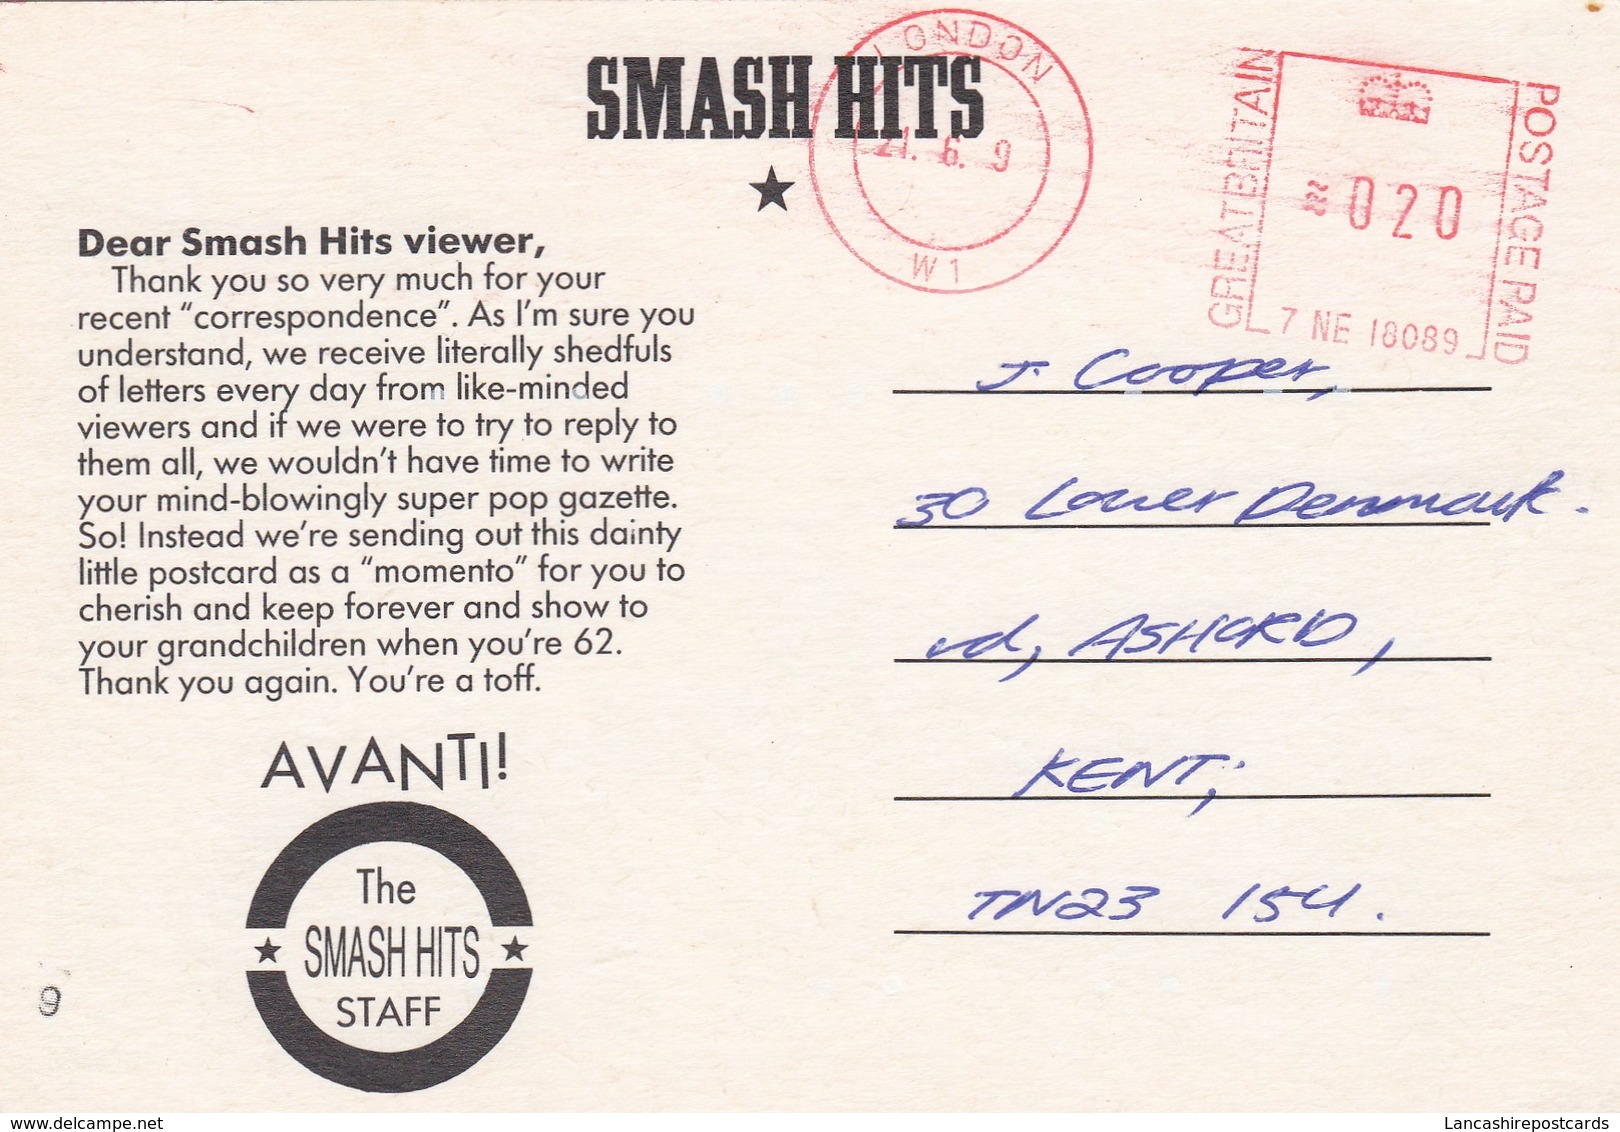 SMASH HITS
LONDON
21. 6. 9
W1
GREAT BRITAIN
020
POSTAGE PAID
7 NE 18089
Dear Smash Hits viewer,
Thank you so very much for your
recent “correspondence”. As I’m sure you
understand, we receive literally shedfuls
of letters every day from like-minded
viewers and if we were to try to reply to
them all, we wouldn’t have time to write
your mind-blowingly super pop gazette.
So! Instead we’re sending out this dainty
little postcard as a “momento” for you to
cherish and keep forever and show to
your grandchildren when you’re 62.
Thank you again. You’re a toff.
AVANTI!
The
SMASH HITS
STAFF
J. Cooper,
30 Lower Denmark.
rd, ASHFORD,
KENT;
TN23 1SU.
9
delcampe.net
Lancashirepostcards